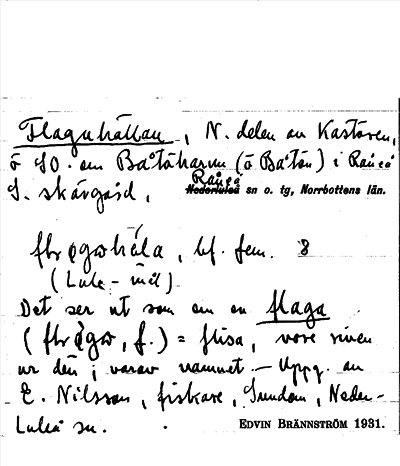 Flaguhällan, N. delen av Kastören,
ö SO. om Båtöharun (ö Båtön) i Råneå
S. skärgård,
Råneå
Nederluleå sn o. tg, Norrbottens län.
häla, bf. fem. 8
(Lule-mål)
Det ser ut som om en flaga
(f.) = flisa, vore riven
ur den i varav namnet — Uppg. av
E. Nilsson, fiskare, Sundom, Neder-
Luleå sn.
EDVIN BRÄNNSTRÖM 1931.